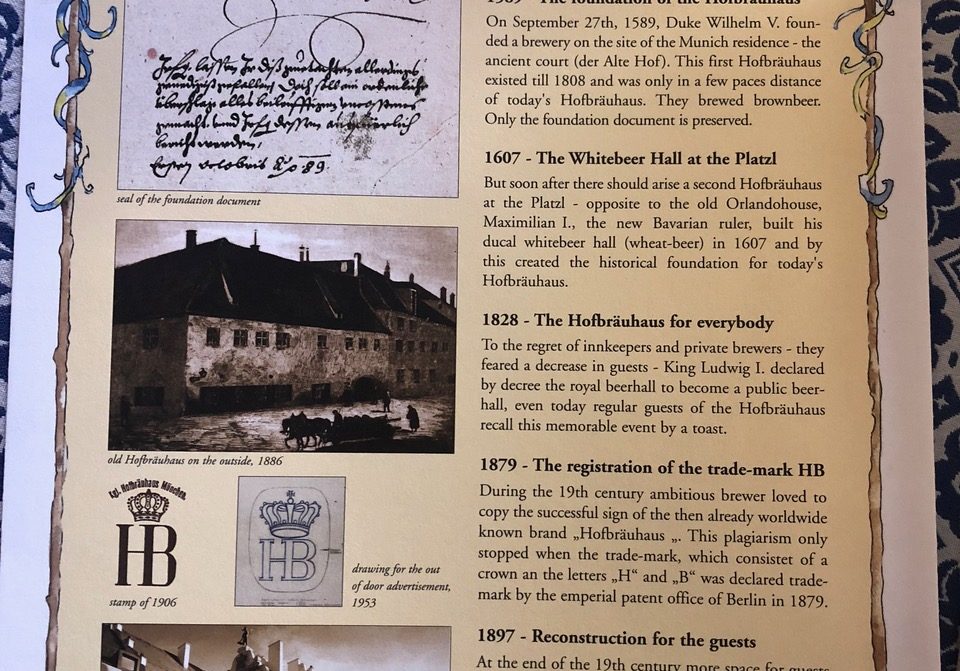 seal of the foundation document
old Hofbräuhaus on the outside, 1886
Kgl. Hofbräuhaus München.
HB
stamp of 1906
HB
drawing for the out
of door advertisement,
1953
1589 - The foundation of the Hofbräuhaus
On September 27th, 1589, Duke Wilhelm V. foun-
ded a brewery on the site of the Munich residence - the
ancient court (der Alte Hof). This first Hofbräuhaus
existed till 1808 and was only in a few paces distance
of today's Hofbräuhaus. They brewed brownbeer.
Only the foundation document is preserved.
1607 - The Whitebeer Hall at the Platzl
But soon after there should arise a second Hofbräuhaus
at the Platzl - opposite to the old Orlandohouse,
Maximilian I., the new Bavarian ruler, built his
ducal whitebeer hall (wheat-beer) in 1607 and by
this created the historical foundation for today's
Hofbräuhaus.
1828 - The Hofbräuhaus for everybody
To the regret of innkeepers and private brewers - they
feared a decrease in guests - King Ludwig I. declared
by decree the royal beerhall to become a public beer-
hall, even today regular guests of the Hofbräuhaus
recall this memorable event by a toast.
1879 - The registration of the trade-mark HB
During the 19th century ambitious brewer loved to
copy the successful sign of the then already worldwide
known brand „Hofbräuhaus „. This plagiarism only
stopped when the trade-mark, which consistet of a
crown an the letters „H“ and „B“ was declared trade-
mark by the emperial patent office of Berlin in 1879.
1897 - Reconstruction for the guests
At the end of the 19th century more space for guests